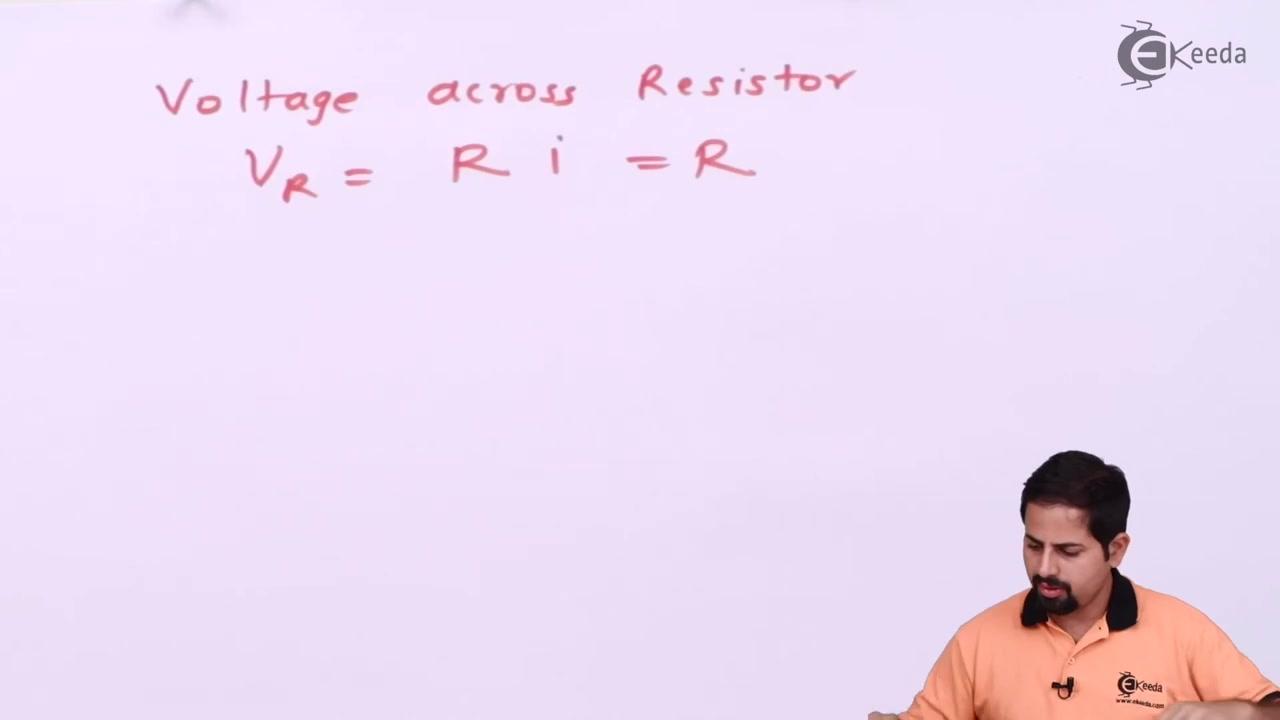 EKeeda
Voltage across Resistor
V_R = R i = R
EKeeda
www.ekeeda.com